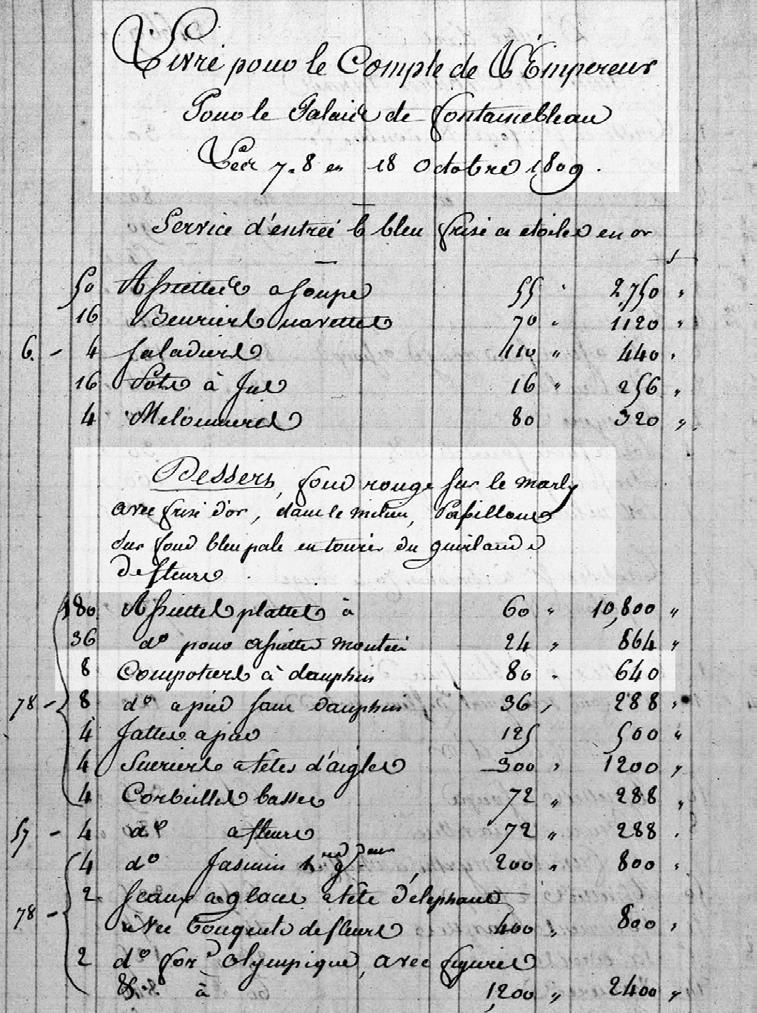 Livré pour le Compte de L'Empereur
Pour le Palais de fontainebleau
Les 7. 8 et 18 Octobre 1,809.
Service d'entrée b bleu frise a etoiles en or
50 Assiettes a soupe 55 " 2,750 "
16 Beuriers navettes 70 " 1120 "
6. - 4 saladiers 110 " 440 "
16 Pots à Jus 16 " 256 "
4 Melonniers 80 " 320 "
Dessert, fond rouge sur le marly
avec frise d'or, dans le milieu, Papillons
sur fond bleu pale entourés du guirlandes
de fleurs.
180. Assiettes plattes à 60 " 10,800 "
36 do pour assiettes montées 24 " 864 "
8 Compotiers à dauphins 80 " 640
78 - 8 do a pied sans dauphins 36 " 288 "
4 Jattes a pans 125 500 "
4 Sucriers a têtes d'aigles 300 " 1200 "
4 Corbeilles basses 72 " 288 "
57 - 4 do a fleurs 72 " 288 "
4 do Jasmin 200 " 800 "
78 - 2 seaux a glace a tête d'elephants
avec bouquets de fleurs 400 " 800 "
2 do for. olympique, avec figures
à 1,200 " 2400 "